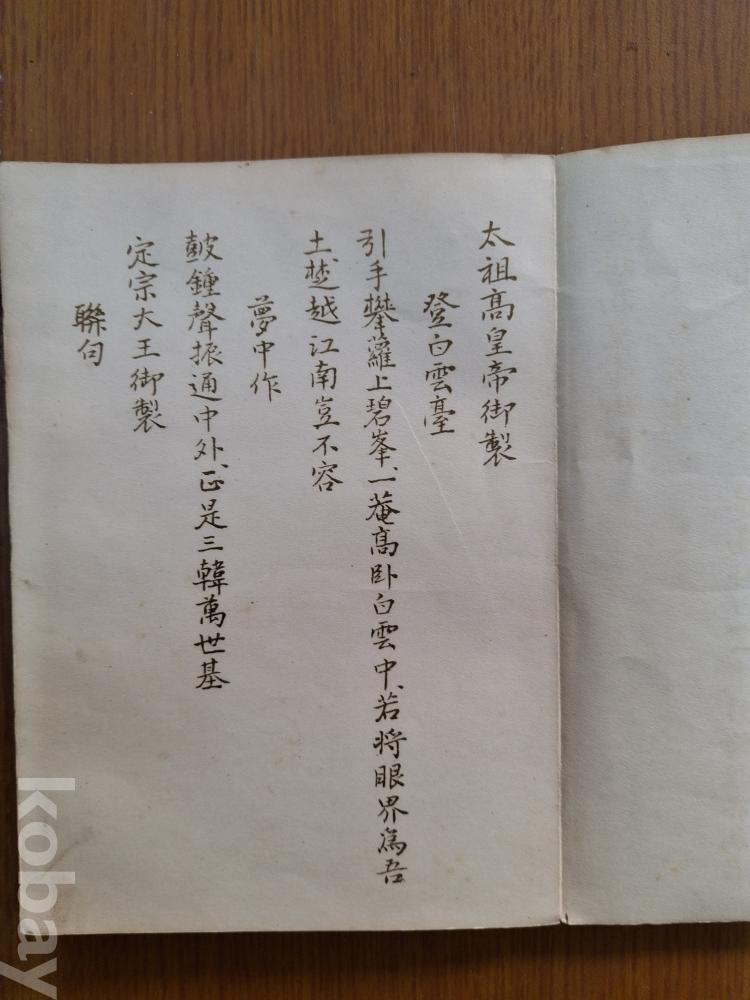 太祖高皇帝御製
登白雲臺
引手攀蘿上碧峯、一菴高臥白雲中、若將眼界爲吾
土、楚越江南豈不容
夢中作
皷鍾聲振通中外、正是三韓萬世基
定宗大王御製
聯句
kobay